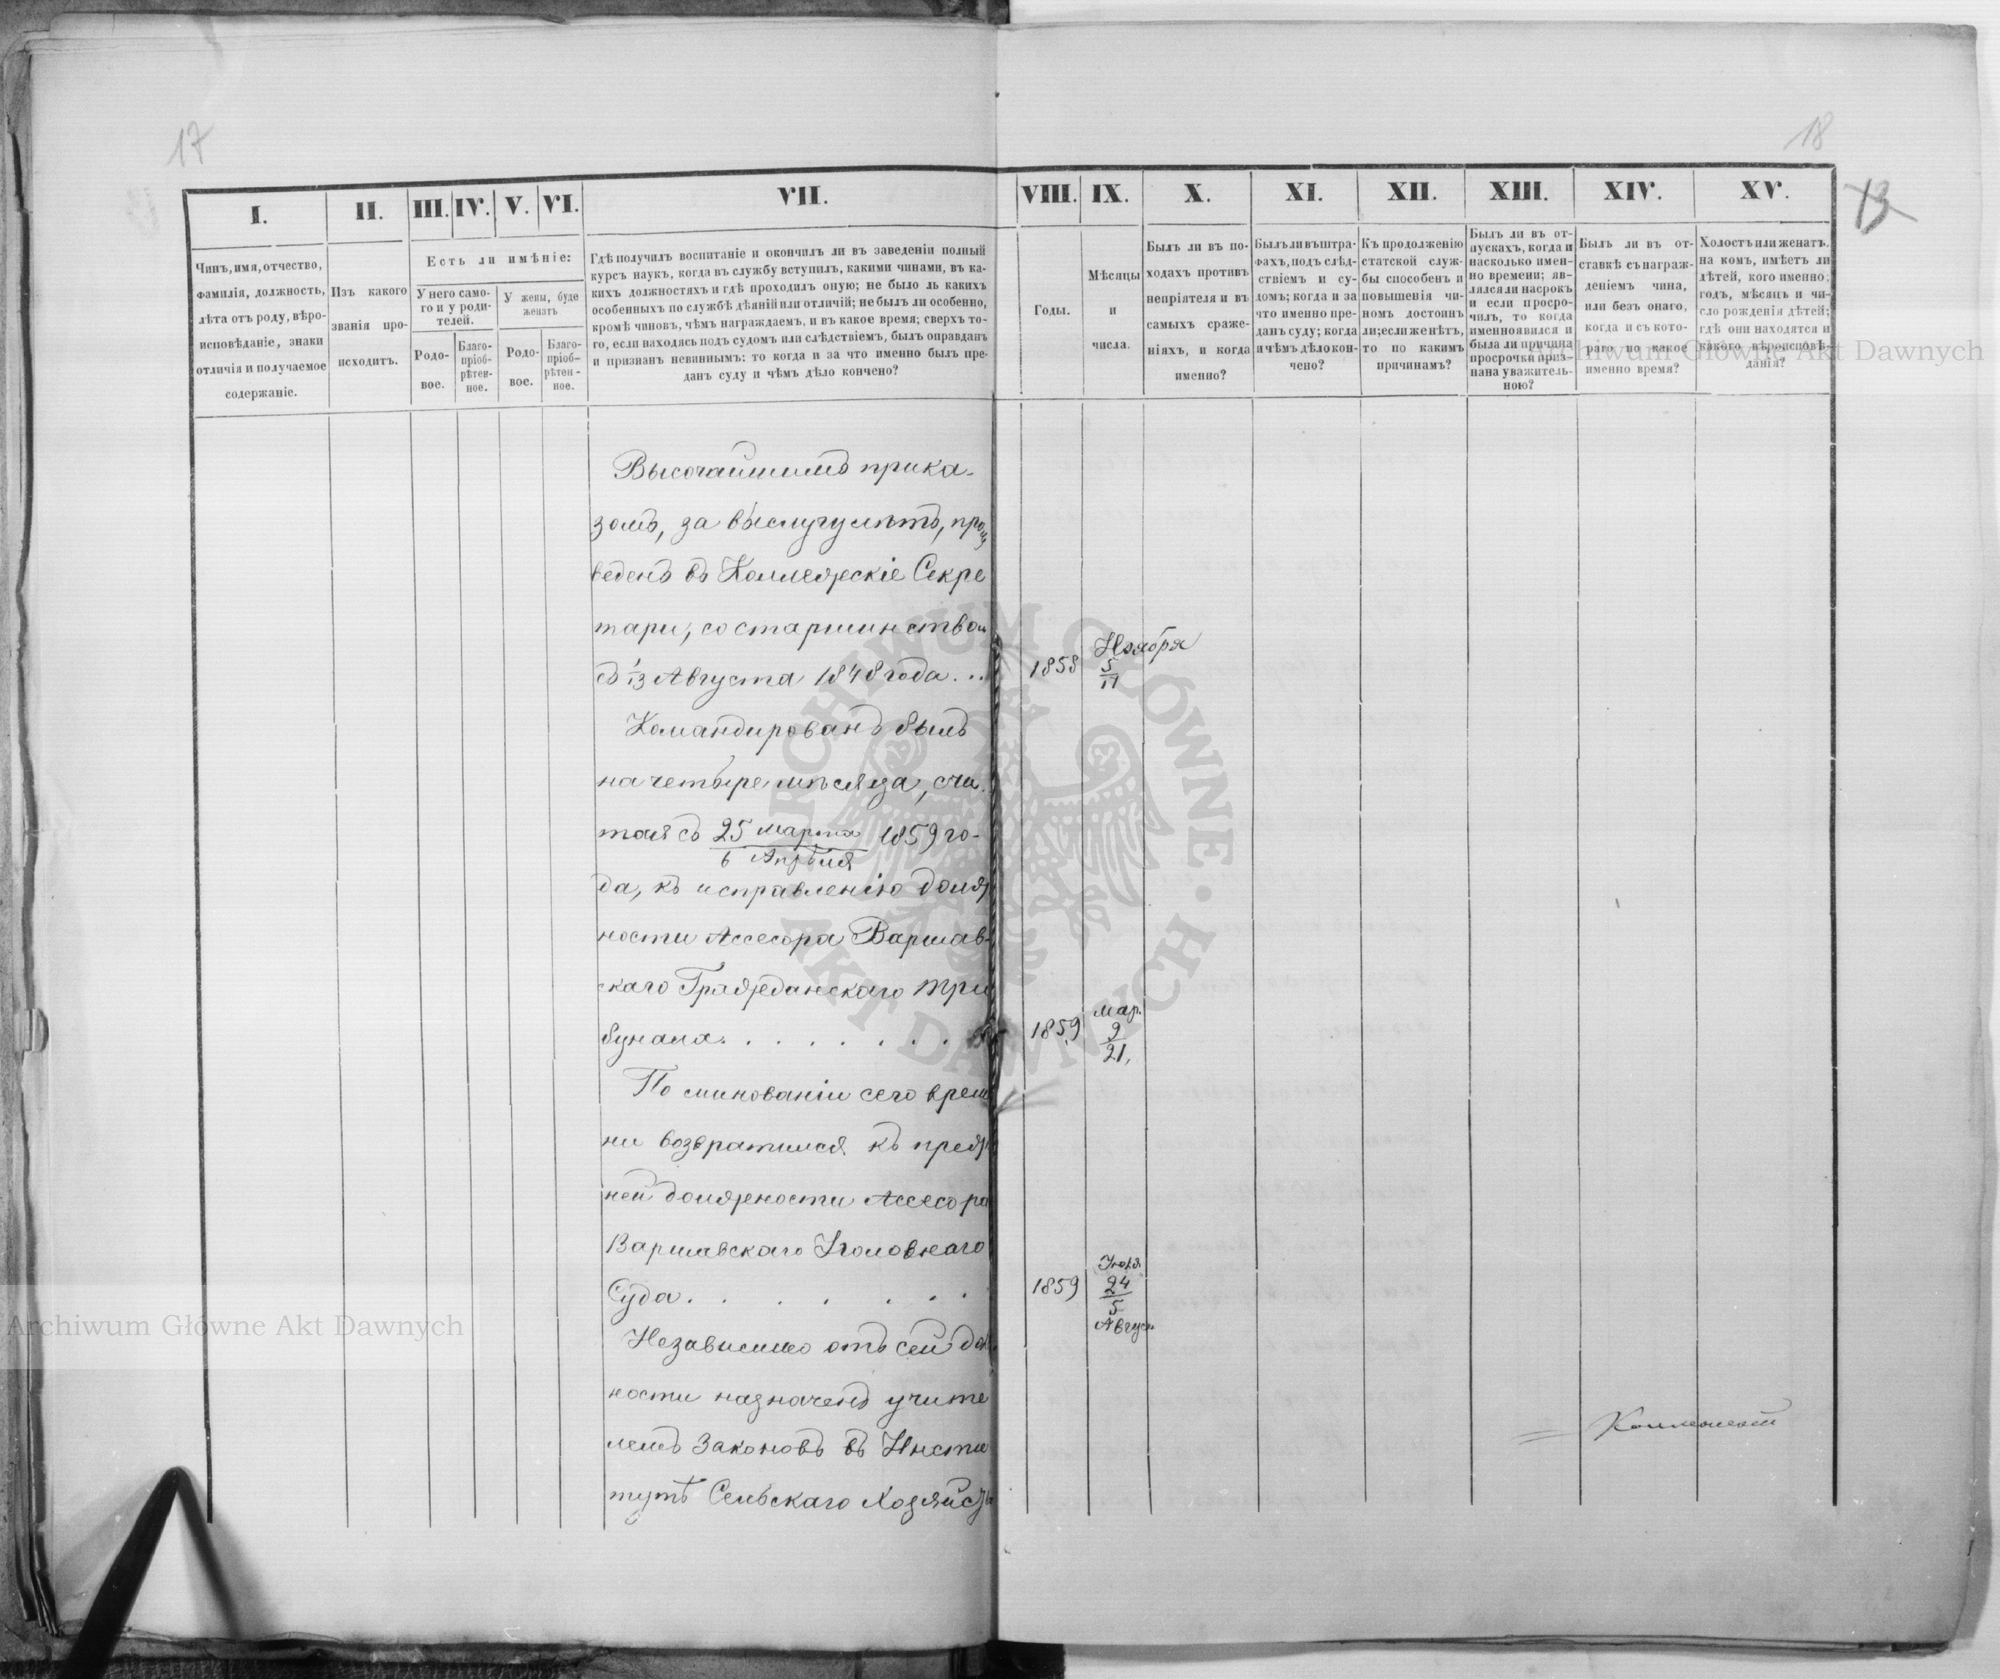 17
18
13
I.
II.
III.
IV.
V.
VI.
VII.
VIII.
IX.
X.
XI.
XII.
XIII.
XIV.
XV.
Чинъ, имя, отчество,
фамилія, должность,
лѣта отъ роду, вѣро-
исповѣданіе, знаки
отличія и получаемое
содержаніе.
Изъ какого
званія про-
исходитъ.
Есть ли имѣніе:
У него само-
го и у роди-
телей.
У жены, буде
женатъ
Родо-
вое.
Благо-
пріоб-
рѣтен-
ное.
Родо-
вое.
Благо-
пріоб-
рѣтен-
ное.
Гдѣ получилъ воспитаніе и окончилъ ли въ заведеніи полный
курсъ наукъ, когда въ службу вступилъ, какими чинами, въ ка-
кихъ должностяхъ и гдѣ проходилъ оную; не было ль какихъ
особенныхъ по службѣ дѣяній или отличій; не былъ ли особенно,
кромѣ чиновъ, чѣмъ награждаемъ, и въ какое время; сверхъ то-
го, если находясь подъ судомъ или слѣдствіемъ, былъ оправданъ
и признанъ невиннымъ: то когда и за что именно былъ пре-
данъ суду и чѣмъ дѣло кончено?
Годы.
Мѣсяцы
и
числа.
Былъ ли въ по-
ходахъ противъ
непріятеля и въ
самыхъ сраже-
ніяхъ, и когда
именно?
Былъ ли въ штра-
фахъ, подъ слѣд-
ствіемъ и су-
домъ; когда и за
что именно пре-
данъ суду; когда
и чѣмъ дѣло кон-
чено?
Къ продолженію
статской служ-
бы способенъ и
повышенія чи-
номъ достоинъ
ли; если же нѣтъ,
то по какимъ
причинамъ?
Былъ ли въ от-
пускахъ, когда и
насколько имен-
но времени; яв-
лялся ли на срокъ
и если просро-
чилъ, то когда
именно явился и
была ли причина
просрочки приз-
нана уважитель-
ною?
Былъ ли въ от-
ставкѣ съ награж-
деніемъ чина,
или безъ онаго,
когда и съ кото-
раго по какое
именно время?
Холостъ или женатъ,
на комъ, имѣетъ ли
дѣтей, кого именно;
годъ, мѣсяцъ и чи-
сло рожденія дѣтей;
гдѣ они находятся и
какого вѣроисповѣ-
данія?
Высочайшимъ прика-
зомъ, за выслугу лѣтъ, произ
веденъ въ Коллежскіе Секре
тари, со старшинством
съ 1/13 Августа 1848 года . . .
1858
Ноября
5
17
Командированъ былъ
на четыре мѣсяца, счи-
тая съ 25 Марта 1859 го-
6 Апрѣля
да, къ исправленію долж
ности Ассесора Варшав-
скаго Гражданскаго Три
бунала . . . . . . . .
1859
Мар.
9
21.
По минованіи сего време
ни возвратился къ преж
ней должности Ассесора
Варшавскаго Уголовнаго
Суда . . . . . . .
1859
Іюля
24
5
Август.
Независимо отъ сей дол
ности назначенъ учите
лемъ Законовъ въ Инсти
тутѣ Сельскаго Хозяйст
Archiwum Główne Akt Dawnych
Archiwum Główne Akt Dawnych
ARCHIWUM GŁÓWNE • AKT DAWNYCH •